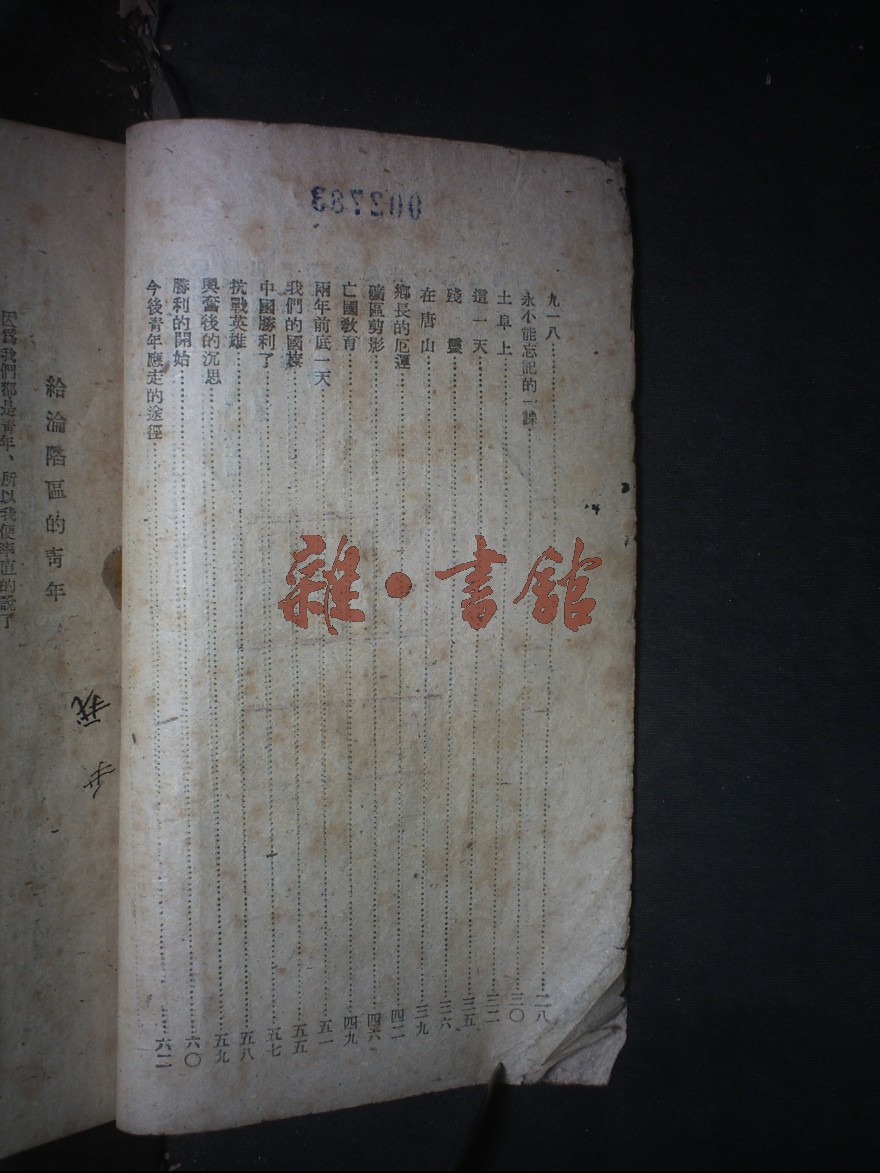 002783
九一八……二八
永小能忘記的一課……三〇
土阜上……三二
這一天……三五
殘靈……三六
在唐山……三九
鄉長的厄運……四二
礦區剪影……四六
亡國教育……四九
兩年前底一天……五一
我們的國族……五五
中國勝利了……五七
抗戰英雄……五八
興奮後的沉思……五九
勝利的開始……六〇
今後青年應走的途徑……六二
雜·書館
給淪陷區的青年
因為我們都是青年、所以我便率直的說了